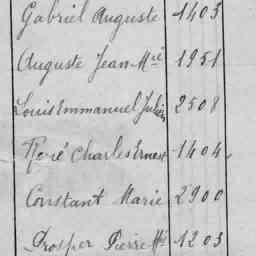 Gabriel Auguste 1403
Auguste Jean Mie 1951
Louis Emmanuel Julien 2508
René Charles Ernest 1404
Constant Marie 2900
Prosper Pierre Mie 1203